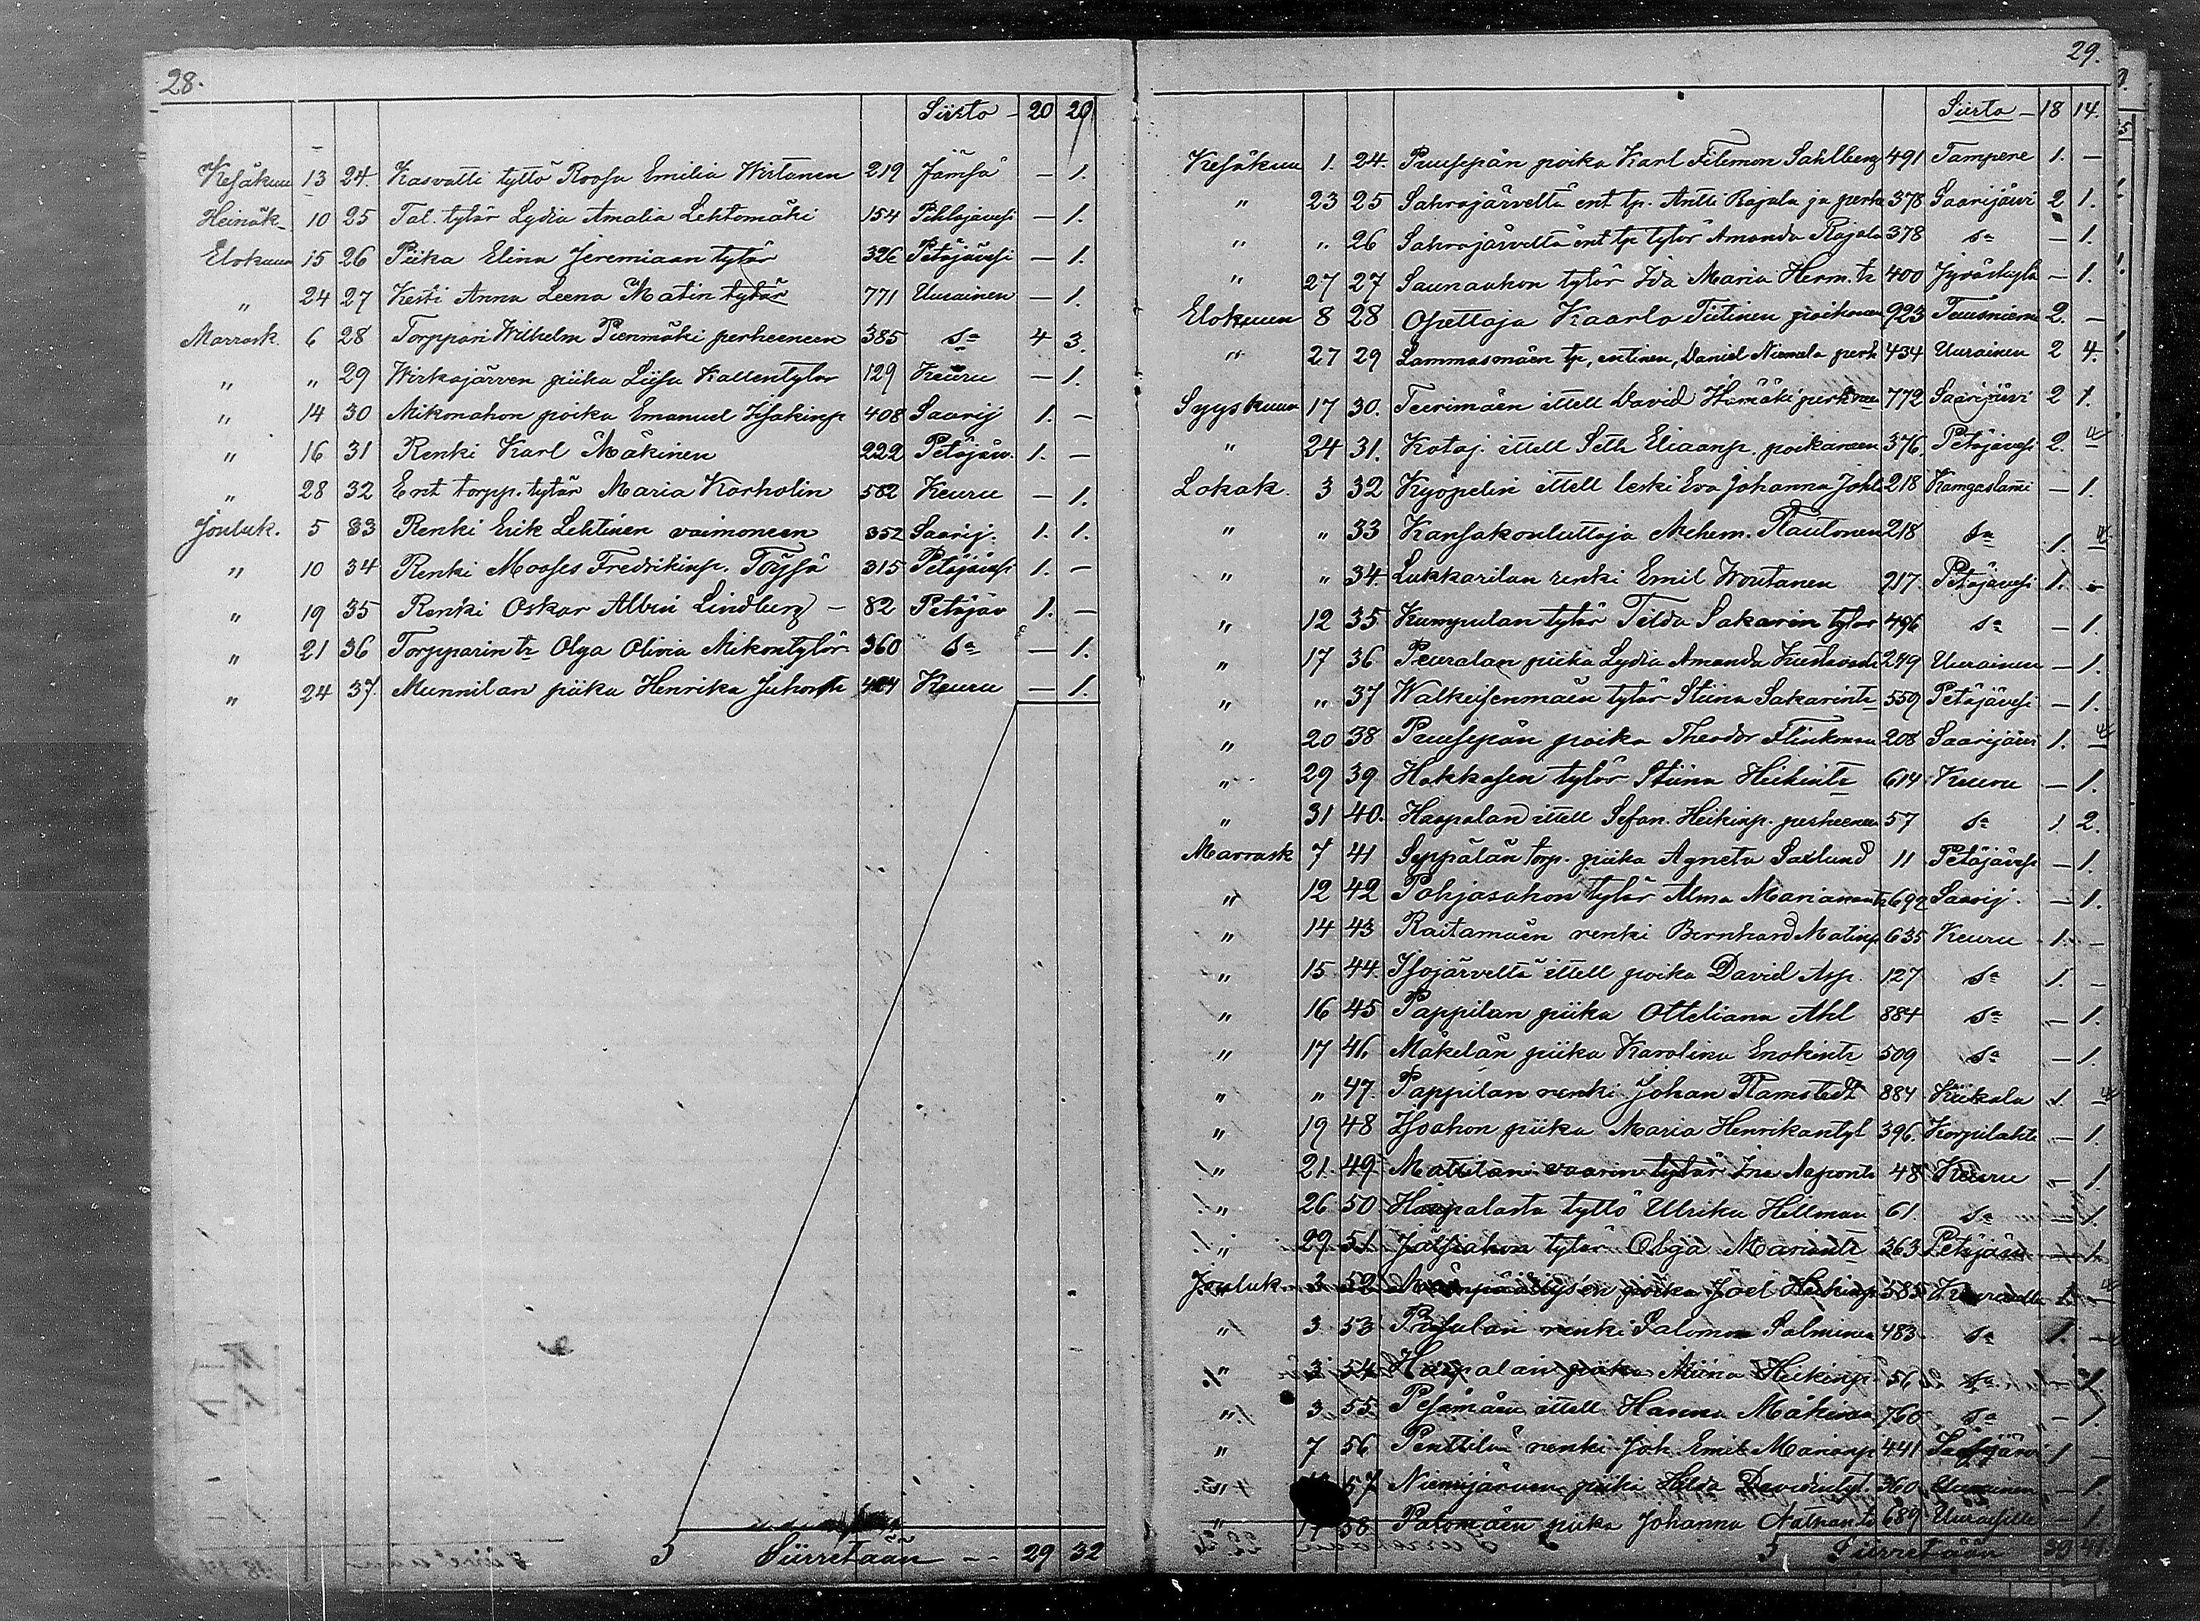 28.
Siirto - 20 20
Kesäkuu 13 24. Kasvatti tyttö Roosa Emilia Wirtanen 219 Jämsä - 1.
Heinäk. 10 25 Tal. tytär Lydia Amalia Lehtomäki 154 Pihlajavesi - 1.
Elokuun 15 26 Piika Elina Jeremiaan tytär 326 Petäjävesi - 1.
" 24 27 Kesti Anna Leena Matin tytär 771 Uurainen - 1.
Marrask. 6 28 Torppari Wilhelm Pienmäki perheeneen 385 sa 4 3.
" " 29 Wirkajärven piika Liisa Kallentytär 129 Keuru - 1.
" 14 30 Mikonahon poika Emanuel Isakinp 408 Saarij 1. -
" 16 31 Renki Karl Mäkinen 222 Petäjäv. 1. -
" 28 32 Ent torpp. tytär Maria Korholin 582 Keuru - 1.
Jouluk. 5 33 Renki Erik Lehtinen vaimoneen 352 Saarij. 1. 1.
" 10 34 Renki Mooses Fredrikinp. Töysä 315 Petäjävesi 1. -
" 19 35 Renki Oskar Albin Lindberg - 82 Petäjäv 1. -
" 21 36 Torpparin tr Olga Olivia Mikontytär 360 sa - 1.
" 24 37. Munnilan piika Henrika Juhontr 404 Keuru - 1.
Siirretään - - 29 32
29.
Siirto - 18 14.
Kesäkuu 1. 24. Puusepän poika Karl Filemon Sahlberg 491 Tampere 1. -
" 23 25 Sahrajärveltä ent tp. Antti Rajala ja perhe 378 Saarijärvi 2 1.
" " 26 Sahrajärveltä ent tp tytär Amanda Rajala 378 sa - 1.
" 27 27 Saunaahon tytär Ida Maria Herm. tr 400 Jyväskylä - 1.
Elokuun 8 28 Opettaja Kaarlo Tiitinen poikineen 923 Tuusniemi 2. -
" 27 29 Lammasmäen tp, entinen, Daniel Niemelä perh 434 Uurainen 2 4.
Syyskuun 17 30. Teerimäen ittell David Hamäki perhneen 772 Saarijärvi 2 1.
" 24 31. Kotaj. ittell Seth Eliaanp. poikaneen 376. Petäjävesi 2.
Lokak. 3 32 Kyöpelin ittell leski Eva Johanna Joh 218 Kangaslami - 1.
" " 33 Kansakouluttaja Mehem. Rautonen 218 sa 1.
" " 34. Lukkarilan renki Emil Woutanen 217. Petäjävesi 1. -
" 12 35 Kumpulan tytär Tilda Sakarin tytär 496 sa - 1.
" 17 36 Peuralan piika Lydia Amanda Kustaantr 249 Uurainen - 1.
" " 37 Walkeisenmäen tytär Stiina Sakarintr 559 Petäjävesi - 1.
" 20 38 Puusepän poika Theodor Flinkman 208 Saarijärvi 1.
" 29 39 Hakkasen tytär Stiina Heikintr 614 Keuru - 1.
" 31 40. Haapalan ittell Sefan. Heikinp. perheeneen 57 sa 1. 2.
Marrask 7 41 Seppälän torp. piika Agneta Saxlund 11 Petäjävesi - 1.
" 12 42 Pohjasahon tytär Alma Mariamantr 692 Saarij. - 1.
" 14 43 Raitamäen renki Bernhard Matinp 635 Keuru 1. -
" 15 44. Isojärveltä ittell poika David Asp. 127 sa 1. -
" 16 45 Pappilan piika Otteliana Ahl 884 sa - 1.
" 17 46. Mäkelän piika Karolina Enokintr 509 sa - 1.
" " 47. Pappilan renki Johan Ramstedt 884 Kiikala 1
" 19 48 Isoahon piika Maria Henrikantyt 396. Korpilahti - 1.
" 21. 49 Mattilan vaarin tytär Ina Aapontr 48 Keuru - 1.
" 26 50 Haapalasta tyttö Ulrika Hellman 61. sa - 1.
" 29 51 tytär Olga Mariantr 363 Petäjäv - 1.
Jouluk. 3 52 poika Joel Heikinp 585 1.
" 3 53 renki Salomon Salminen 483 sa 1. -
" 3 54 Haapalan piika Miina Heikinp 56 sa
" 3 55 Pesämäen ittell Hanna Mäkinen 760 sa - 1.
" 7 56 Penttilän renki Joh. Emil Marianp 441 Saarijärvi 1 -
57 Niemijärven piika Hilda Davidintyt. 360 Uurainen - 1
" 17 58. Palomäen piika Johanna Natnantr 689 - 1.
Siirretään 39 41.